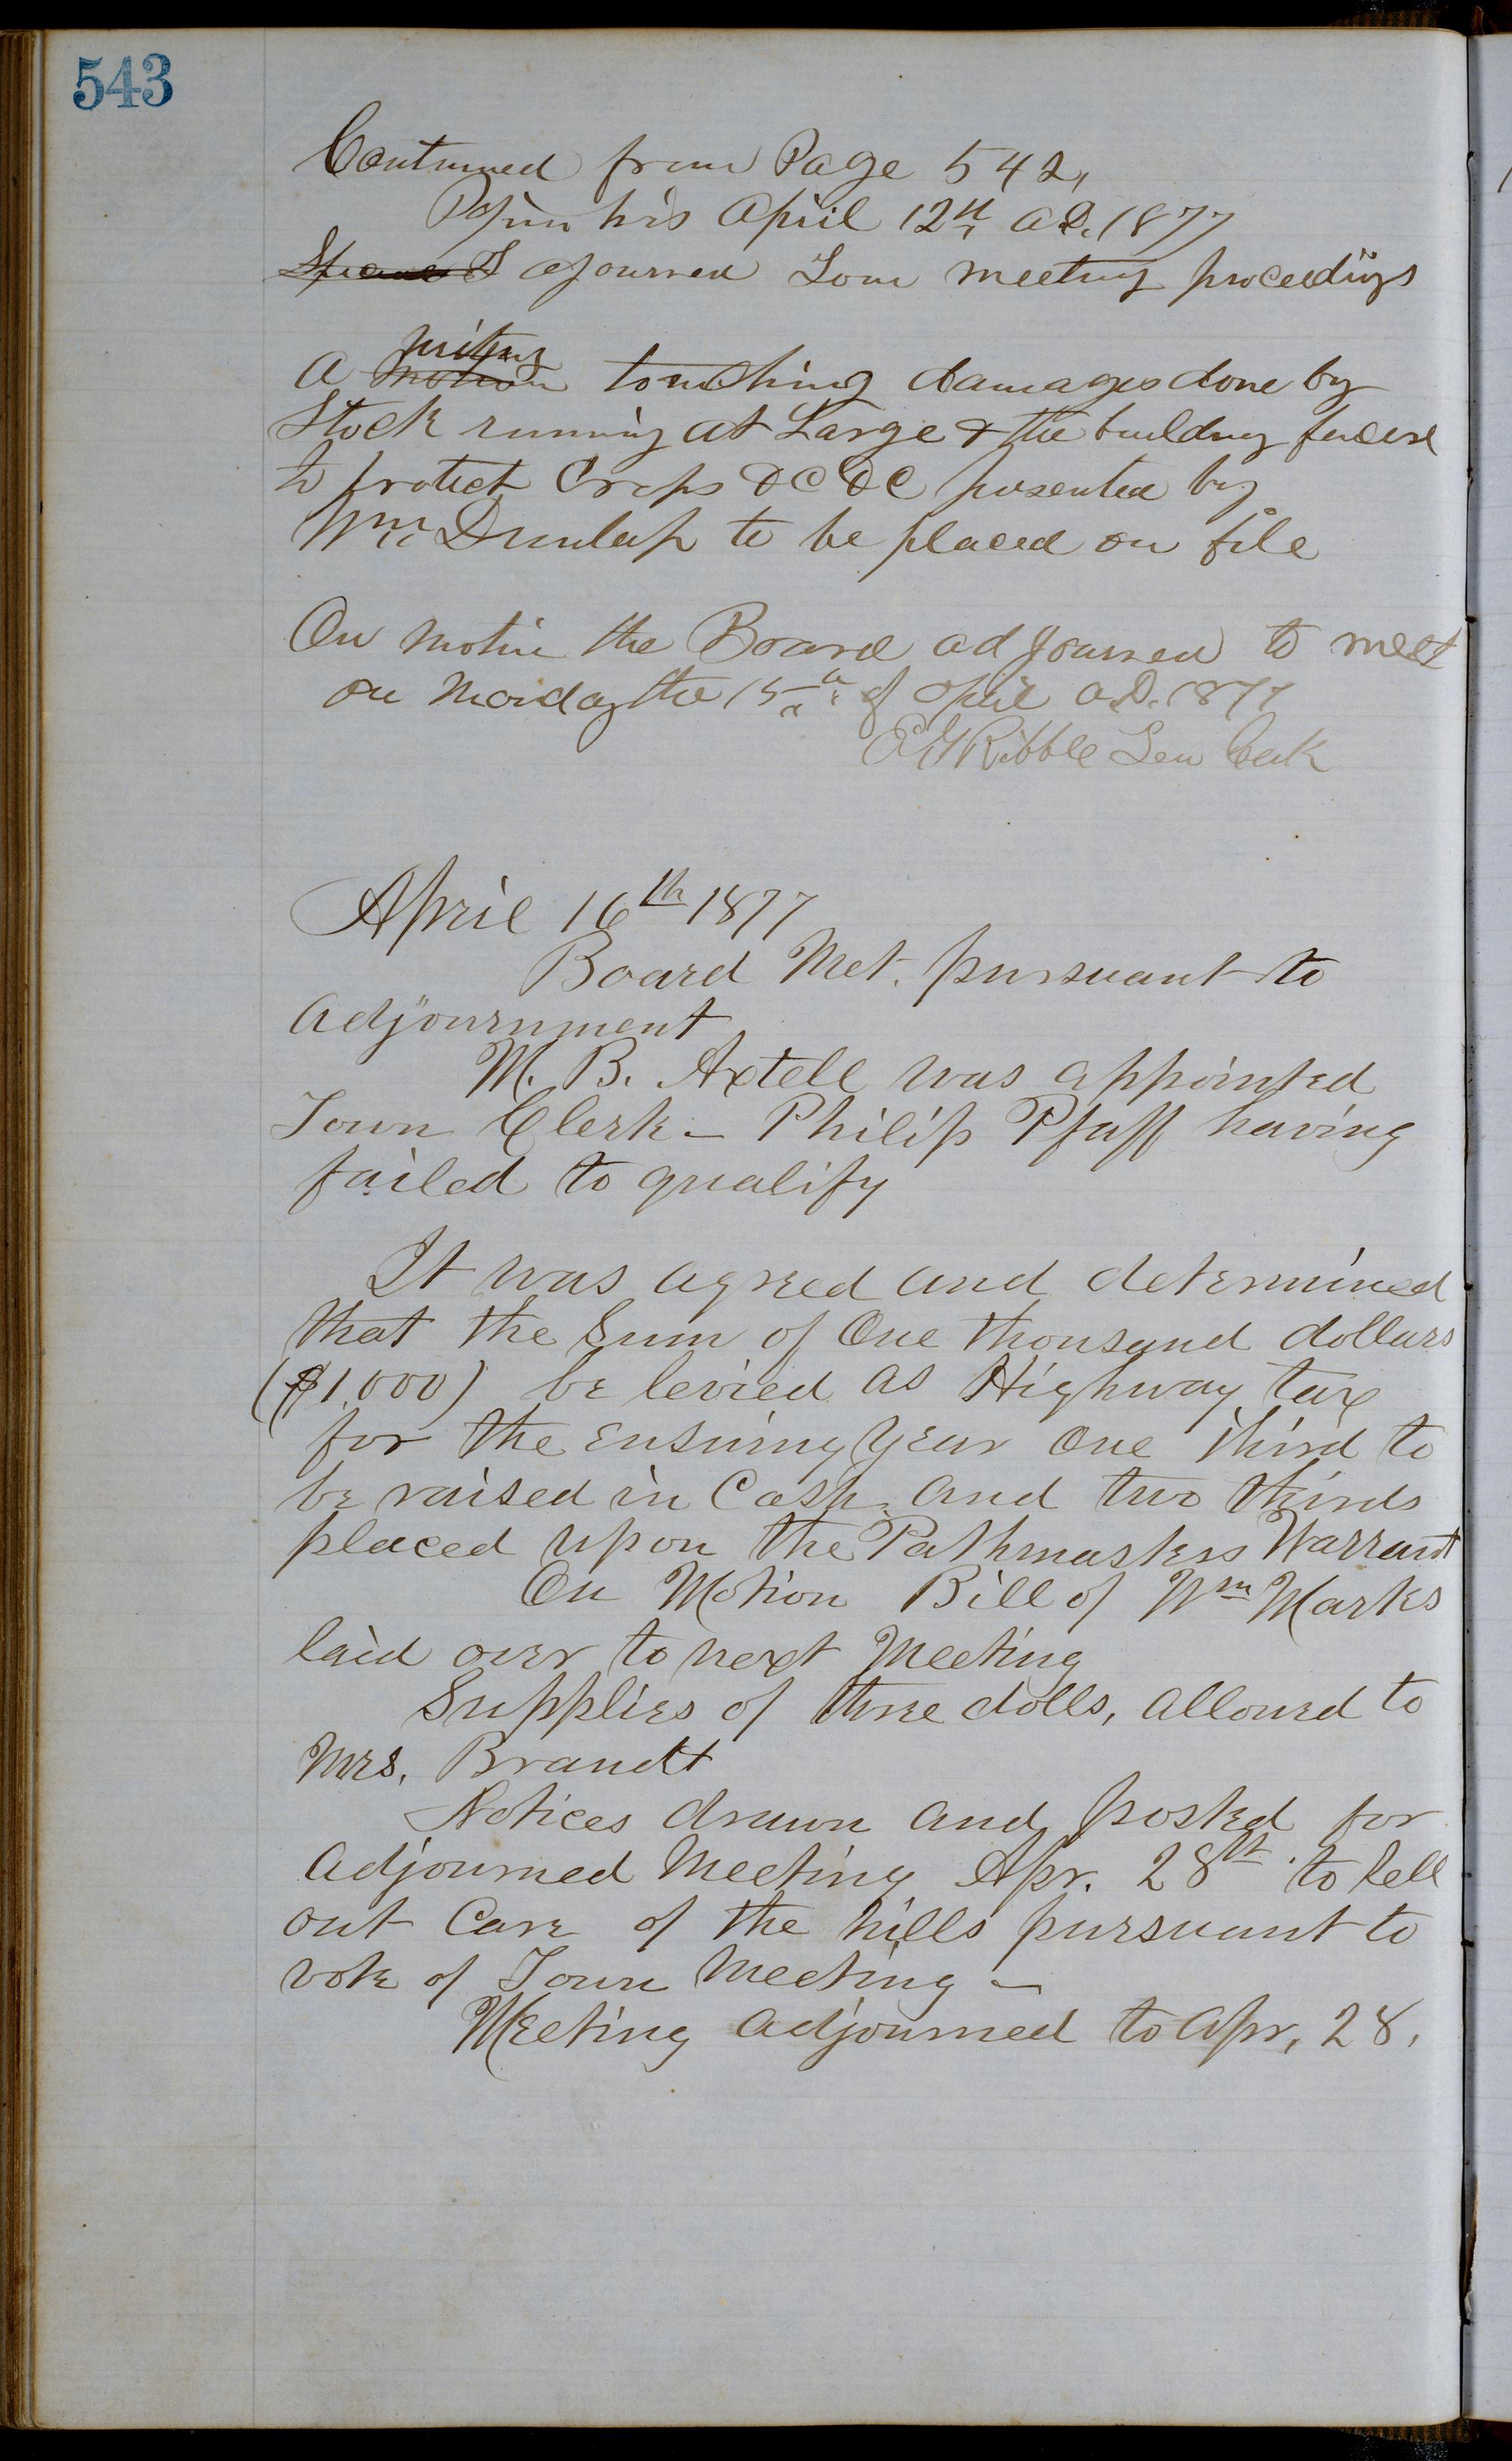 543
Contunued from Page 542,
his April 12th AD. 1877
ajourned Town meeting proceedings
writing
A motion touching damages done by
Stock running at Large & the building fences
to protect Crops &C &C presented by
Wm Dunlap to be placed on file
On motion the Board adjourned to meet
on Monday the 15th of April A.D. 1877
Ribble Clerk
April 16th 1877
Board Met. pursuant to
adjournment
M. B. Axtell was appointed
Town Clerk - Philip Pfaff having
failed to qualify
It was agreed and determined
that the Sum of One thousand dollars
($1.000) be levied as Highway tax
for the ensuing year One third to
be raised in Cash and two thirds
placed upon the Pathmasters Warrant
On Motion Bill of Wm Marks
laid over to next Meeting
Supplies of three dolls, allowed to
Mrs. Brandt
Notices drawn and posted for
adjourned Meeting Apr. 28th. to lell
out Care of the hills pursuant to
vote of Town Meeting -
Meeting adjourned to Apr, 28,